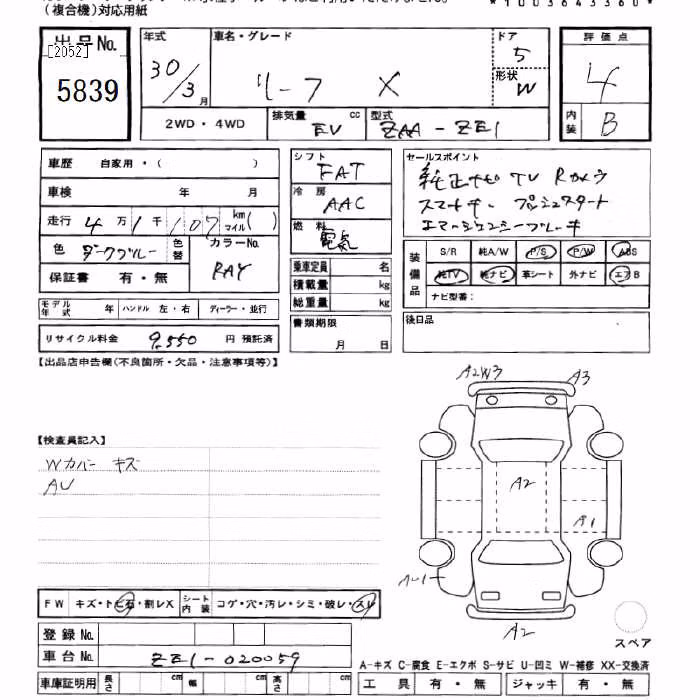 （複合機）対応用紙
出品No.
[2052]
5839
年式
30/3月
車名・グレード
リーフ X
ドア
5
形状
W
評価点
4
内装
B
2WD・4WD
排気量 EV cc
型式 ZAA-ZE1
車歴 自家用・( )
車検 年 月
走行 4万1千107 km マイル( )
色 ダークブルー
色替
カラーNo.
RAY
保証書 有・無
シフト
FAT
冷房
AAC
燃料
電気
乗車定員 名
積載量 kg
総重量 kg
セールスポイント
純正ナビ TV Rカメラ
スマートキー プッシュスタート
エマージェンシーブレーキ
装備品
S/R 純A/W P/S P/W ABS
純TV 純ナビ 革シート 外ナビ エアB
ナビ型番：
モデル年式 年 ハンドル 左・右 ディーラー・並行
書類期限
月 日
後日品
リサイクル料金 9,550 円 預託済
【出品店申告欄(不良箇所・欠品・注意事項等)】
A2W3
A3
【検査員記入】
Wカバー キズ
AU
A2
A1
A2
スペア
FW キズ・トビ石・割レX
シート内装 コゲ・穴・汚レ・シミ・破レ・スレ
登録No.
車台No. ZE1-020059
車庫証明用 長さ cm 幅 cm 高さ cm
A-キズ C-腐食 E-エクボ S-サビ U-凹ミ W-補修 XX-交換済
工具 有・無 ジャッキ 有・無